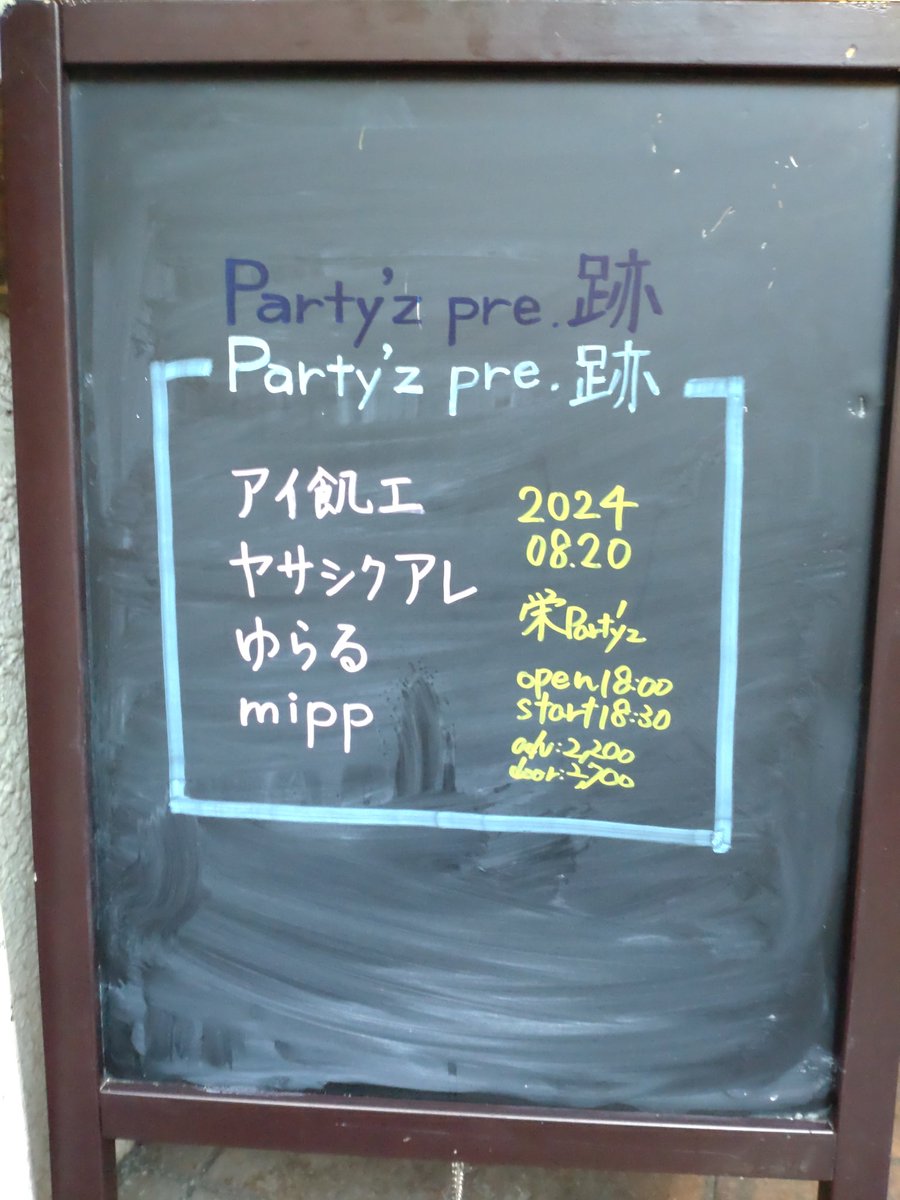 Party'z pre.跡
Party'z pre.跡
アイ飢エ
ヤサシクアレ
ゆらる
mipp
2024
08.20
栄Party'z
open18:00
start18:30
adv:2,200
door:2,700